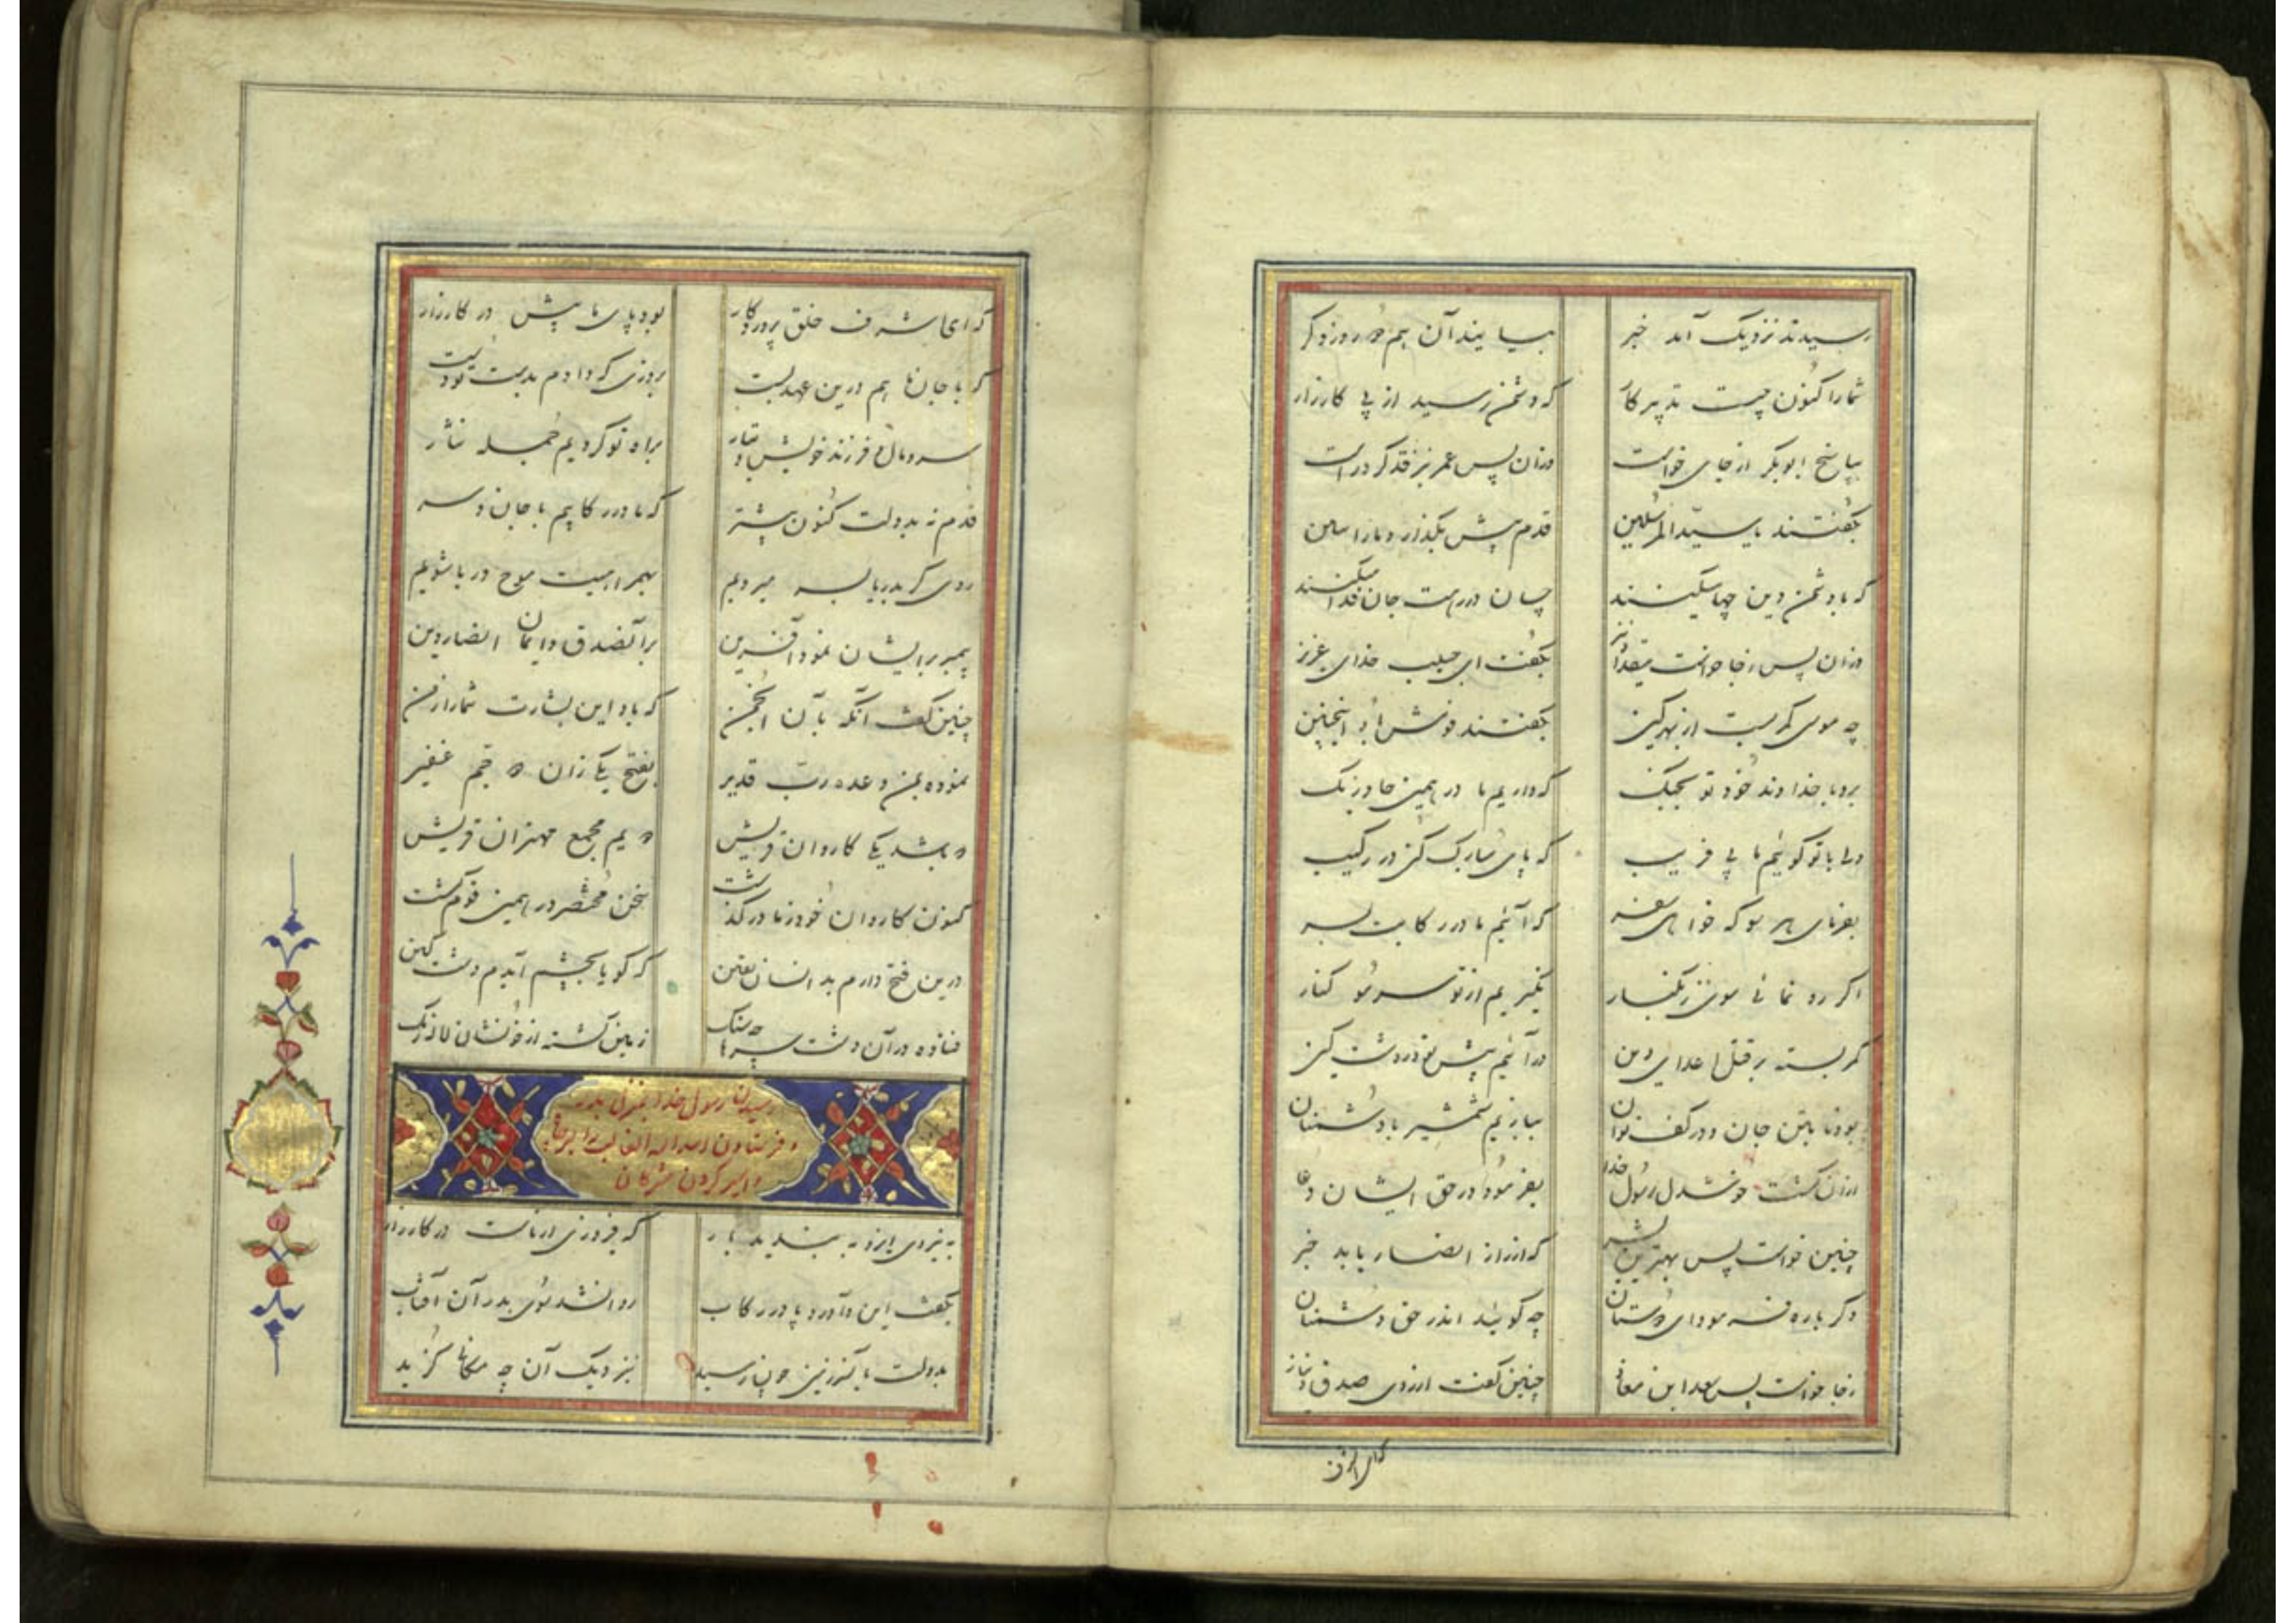 رسیدند نزدیک آمد خبر بیایند آن هم روز دگر
شما را کنون چیست تدبیر کار که دشمن رسید از پی کارزار
بپاسخ ابوبکر از جای خواست وزان پس عمر نیز قد کرد راست
بگفتند یا سیدالمرسلین قدم پیش بگذار و ما را ببین
که با دشمن دین چها میکنند چسان در رهت جان فدا میکنند
وزان پس ز جا خواست مقداد نیز بگفت ای حبیب خدای عزیز
چه موسی کمر بست از بهر کین بگفتند قومش باو اینچنین
برو با خداوند خود تو بجنگ که داریم ما در همین جا درنگ
ولی با تو گوئیم ما بی فریب که پای مبارک کن در رکیب
بفرمای هر سو که خواهی سفر که آئیم ما در رکابت بسر
اگر رو نمائی سوی زنگبار نگیریم از تو سر مو کنار
کمر بسته بر قتل اعدای دین درآئیم پیش تو در دشت کین
بود تا بتن جان و در کف توان ببازیم شمشیر با دشمنان
ازان گشت خوشدل رسول خدا بفرمود در حق ایشان دعا
چنین خواست پس بهترین بشر که از راز انصار یابد خبر
دگرباره فرمود ای دوستان چه گوئید اندر حق دشمنان
ز جا خواست پس سعد ابن معاذ چنین گفت از روی صدق و نیاز
که ای اشرف خلق پروردگار بود پای ما پیش در کارزار
که با جان ما هم درین عهد بست بروزی که دادیم بدست تو دست
سر و مال و فرزند و خویش و تبار براه تو کردیم جمله نثار
قدم نه بدولت کنون پیشتر که ما در رکابیم با جان و سر
روی گر بدریا بسر میرویم بهمراهیت موج دریا شویم
پیمبر بر ایشان نمود آفرین بر آن صدق و ایمان انصار دین
چنین گفت آنگه بآن انجمن که باد این بشارت شما را ز من
نموده بمن وعده رب قدیر بفتح یکی زان دو جمع غفیر
که باشد یکی کاروان قریش دویم مجمع مهتران قریش
کنون کاروان خود ز ما درگذشت سخن مختصر در همین قوم گشت
درین فتح دارم بدانسان یقین که گویا بچشم آیدم دشت کین
فتاده در آن دشت سرها چه سنگ زمین گشته از خونشان لاله رنگ
رسیدن رسول خدا بمنزل بدر
و فرستادن اسد الله الغالب را بر چاه
و اسیر کردن مشرکان
به نیروی ایزد ببندید بار که فیروزی از ماست در کارزار
بگفت این و آورد پا در رکاب روان شد سوی بدر آن آفتاب
بدولت بآن سرزمین چون رسید بنزدیک آن چه مکان گزید